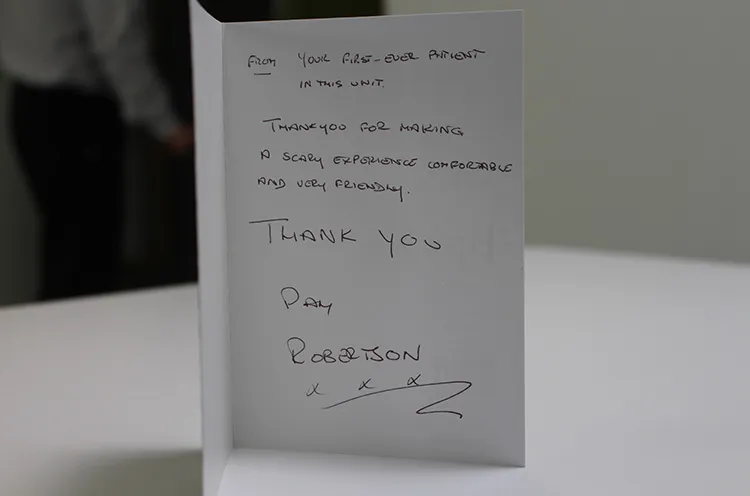 FROM YOUR FIRST-EVER PATIENT
IN THIS UNIT.
THANKYOU FOR MAKING
A SCARY EXPERIENCE COMFORTABLE
AND VERY FRIENDLY.
THANK YOU
PAM
ROBERTSON
x x x